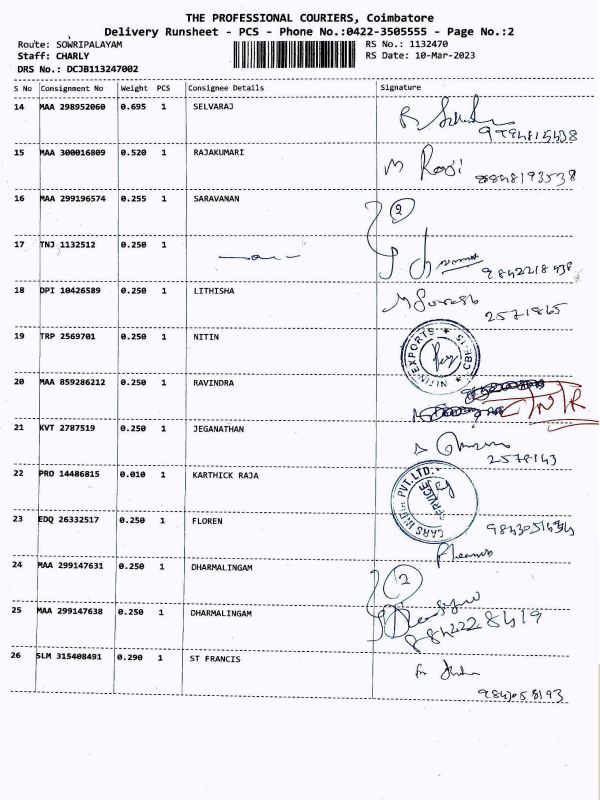 THE PROFESSIONAL COURIERS, Coimbatore
Delivery Runsheet - PCS - Phone No.:0422-3505555 - Page No.:2
Route: SOWRIPALAYAM RS No.: 1132470
Staff: CHARLY RS Date: 10-Mar-2023
DRS No.: DCJB113247002
S No Consignment No Weight PCS Consignee Details Signature
14 MAA 298952060 0.695 1 SELVARAJ
15 MAA 300016809 0.520 1 RAJAKUMARI
M Raji
8848193538
16 MAA 299196574 0.255 1 SARAVANAN
2
17 TNJ 1132512 0.250 1
9842218438
18 DPI 10426589 0.250 1 LITHISHA
M Suresh
2571865
19 TRP 2569701 0.250 1 NITIN
NITIN EXPORTS * CBE-15 *
20 MAA 859286212 0.250 1 RAVINDRA
C/N/R
21 KVT 2787519 0.250 1 JEGANATHAN
2578143
22 PRO 14486815 0.010 1 KARTHICK RAJA
CARS INDIA PVT.LTD.
SERVICE
23 EDQ 26332517 0.250 1 FLOREN
24 MAA 299147631 0.250 1 DHARMALINGAM
2
25 MAA 299147638 0.250 1 DHARMALINGAM
26 SLM 315408491 0.290 1 ST FRANCIS